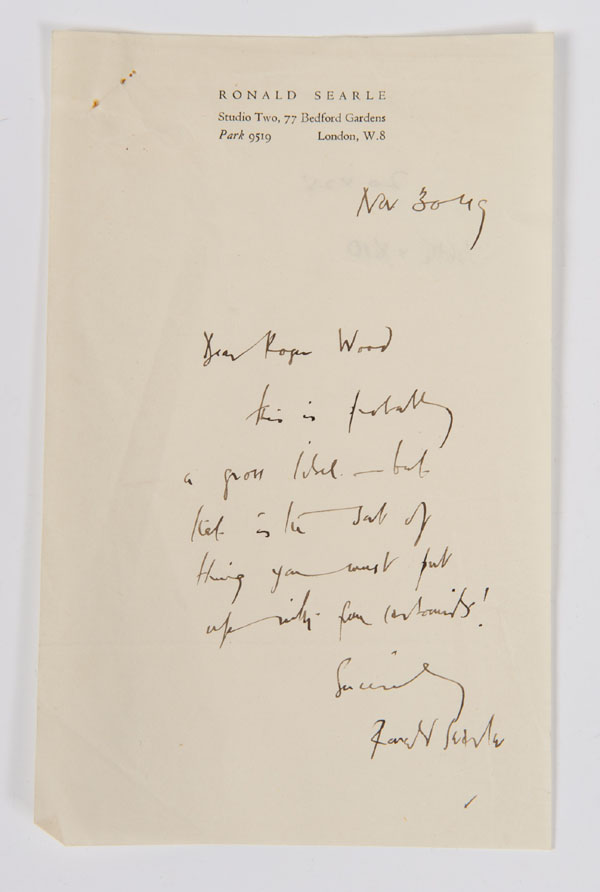 RONALD SEARLE
Studio Two, 77 Bedford Gardens
Park 9519 London, W.8
Nov 30 49
Dear Roger Wood
this is probably
a gross libel — but
that is the sort of
thing you must put
up with from cartoonists!
Sincerely
Ronald Searle